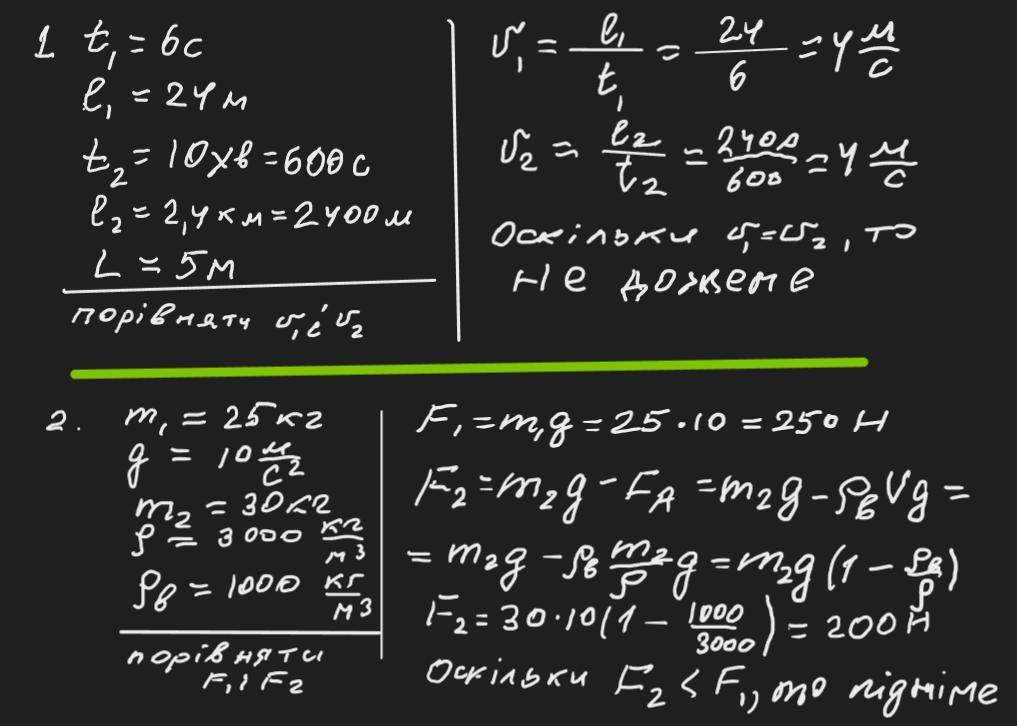 1 t₁ = 6с
ℓ₁ = 24 м
t₂ = 10хв = 600 с
ℓ₂ = 2,4 км = 2400 м
L = 5 м
порівняти υ₁ і υ₂
υ₁ = ℓ₁/t₁ = 24/6 = 4 м/с
υ₂ = ℓ₂/t₂ = 2400/600 = 4 м/с
Оскільки υ₁ = υ₂, то
не дожене
2. m₁ = 25 кг
g = 10 м/с²
m₂ = 30 кг
ρ = 3000 кг/м³
ρв = 1000 кг/м³
порівняти
F₁ і F₂
F₁ = m₁g = 25 · 10 = 250 Н
F₂ = m₂g - FA = m₂g - ρвVg =
= m₂g - ρв m₂/ρ g = m₂g (1 - ρв/ρ)
F₂ = 30 · 10 (1 - 1000/3000) = 200 Н
Оскільки F₂ < F₁, то підніме